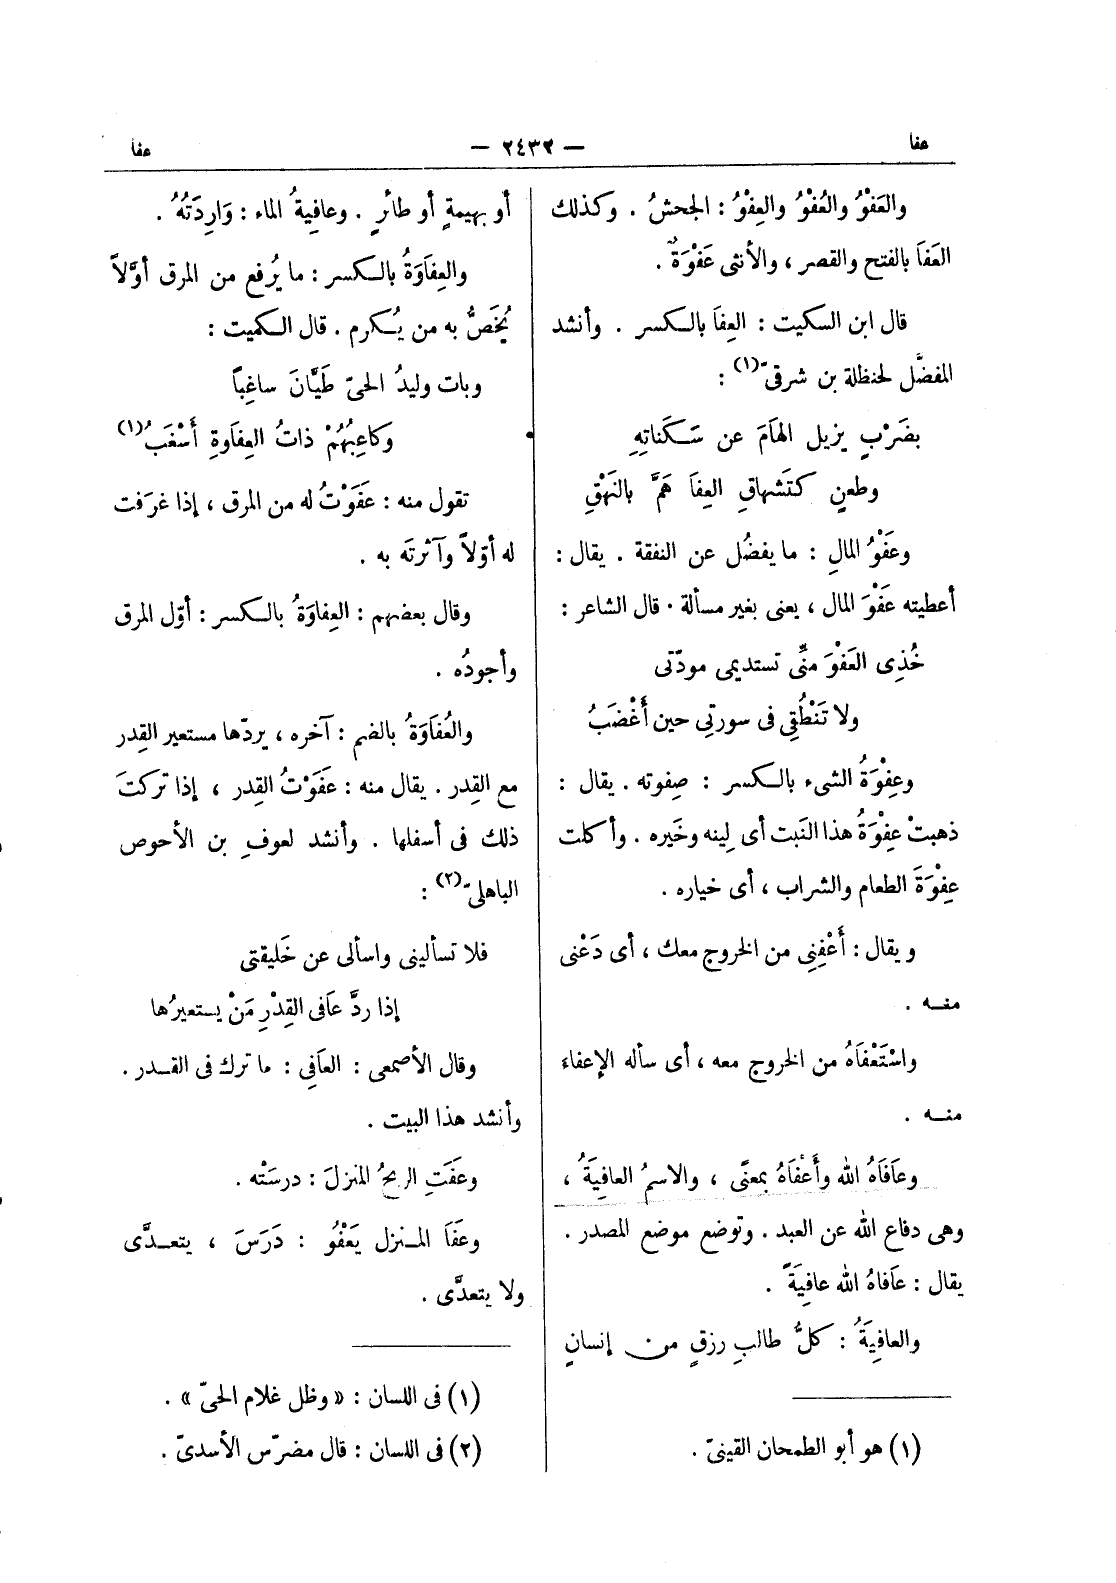 عفا
— ٢٤٣٢ —
عفا
والعَفْوُ والعُفْوُ والعِفْوُ : الجحشُ . وكذلك
العَفَا بالفتح والقصر ، والأنثى عَفْوَةٌ .
قال ابن السكيت : العِفَا بالكسر . وأنشد
المفضَّل لحنظلة بن شرقىّ (١) :
بضَرْبٍ يزيل الهَامَ عن سَكَناتِهِ
وطعنٍ كتَشهاقِ العِفَا هَمَّ بالنَهْقِ
وعَفْوُ المالِ : ما يفضُل عن النفقة . يقال :
أعطيته عَفْوَ المال ، يعنى بغير مسألة . قال الشاعر :
خُذِى العَفْوَ منِّى تستديمى مودّتى
ولا تَنْطُقِى فى سورتِى حين أَغْضَبُ
وعِفْوَةُ الشىء بالكسر : صِفوته . يقال :
ذهبتْ عِفْوَةُ هذا النَبت أى لِينه وخَيره . وأكلت
عِفْوَةَ الطعام والشراب ، أى خياره .
ويقال : أَعْفِنِى من الخروج معك ، أى دَعْنى
منه .
واسْتَعْفَاهُ من الخروج معه ، أى سأله الإعفاء
منه .
وعَافَاهُ الله وأَعْفَاهُ بمعنًى ، والاسمُ العافِيَةُ ،
وهى دفاع الله عن العبد . وتوضع موضع المصدر .
يقال : عافاهُ الله عافِيَةً .
والعافِيَةُ : كلُّ طالبِ رزقٍ من إنسانٍ
(١) هو أبو الطمحان القينىّ .
أو بهيمةٍ أو طائرٍ . وعافِيةُ الماء : وَارِدَتُهُ .
والعِفَاوَةُ بالكسر : ما يُرفع من المرق أوَّلاً
يُخَصُّ به من يُكرم . قال الكميت :
وبات وليدُ الحىّ طَيَّانَ ساغِباً
وكاعِبُهُمْ ذاتُ العِفَاوةِ أَسْغَبُ (١)
تقول منه : عَفَوْتُ له من المرق ، إذا غرَفت
له أوّلاً وآثرتَه به .
وقال بعضهم : العِفاوَةُ بالكسر : أوّل المرق
وأجودُه .
والعُفَاوَةُ بالضم : آخره ، يردّها مستعير القِدر
مع القِدر . يقال منه : عَفَوْتُ القِدر ، إذا تركتَ
ذلك فى أسفلها . وأنشد لعوفِ بن الأحوص
الباهلىّ (٢) :
فلا تسألينى واسألى عن خَليقتى
إذا ردَّ عَافى القِدْرِ مَنْ يستعيرُها
وقال الأصمعى : العَافِى : ما ترك فى القدر .
وأنشد هذا البيت .
وعفَتِ الريحُ المنزلَ : درسَتْه .
وعفَا المنزل يَعْفُو : دَرَسَ ، يتعدَّى
ولا يتعدَّى .
(١) فى اللسان : « وظل غلام الحىّ » .
(٢) فى اللسان : قال مضرّس الأسدىّ .